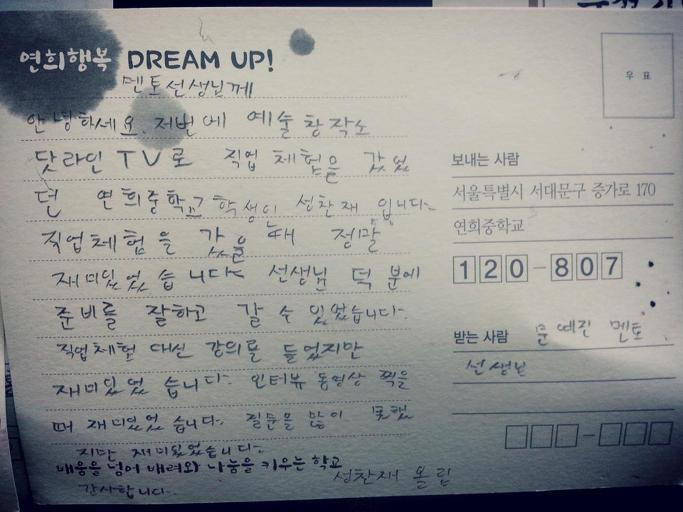 연희행복 DREAM UP!
멘토선생님께
안녕하세요. 저번에 예술 창작소
닷라인 TV로 직업 체험을 갔었
던 연희중학교 학생인 성찬재 입니다.
직업체험을 갔을 때 정말
재미있었습니다. 선생님 덕분에
준비를 잘하고 갈 수 있었습니다.
직업체험 대신 강의를 들었지만
재미있었습니다. 인터뷰 동영상 찍을
때 재미있었습니다. 질문을 많이 못했
지만 재미있었습니다.
배움을 넘어 배려와 나눔을 키우는 학교
감사합니다.
성찬재 올림
우표
보내는 사람
서울특별시 서대문구 증가로 170
연희중학교
120-807
받는 사람 문예진 멘토
선생님